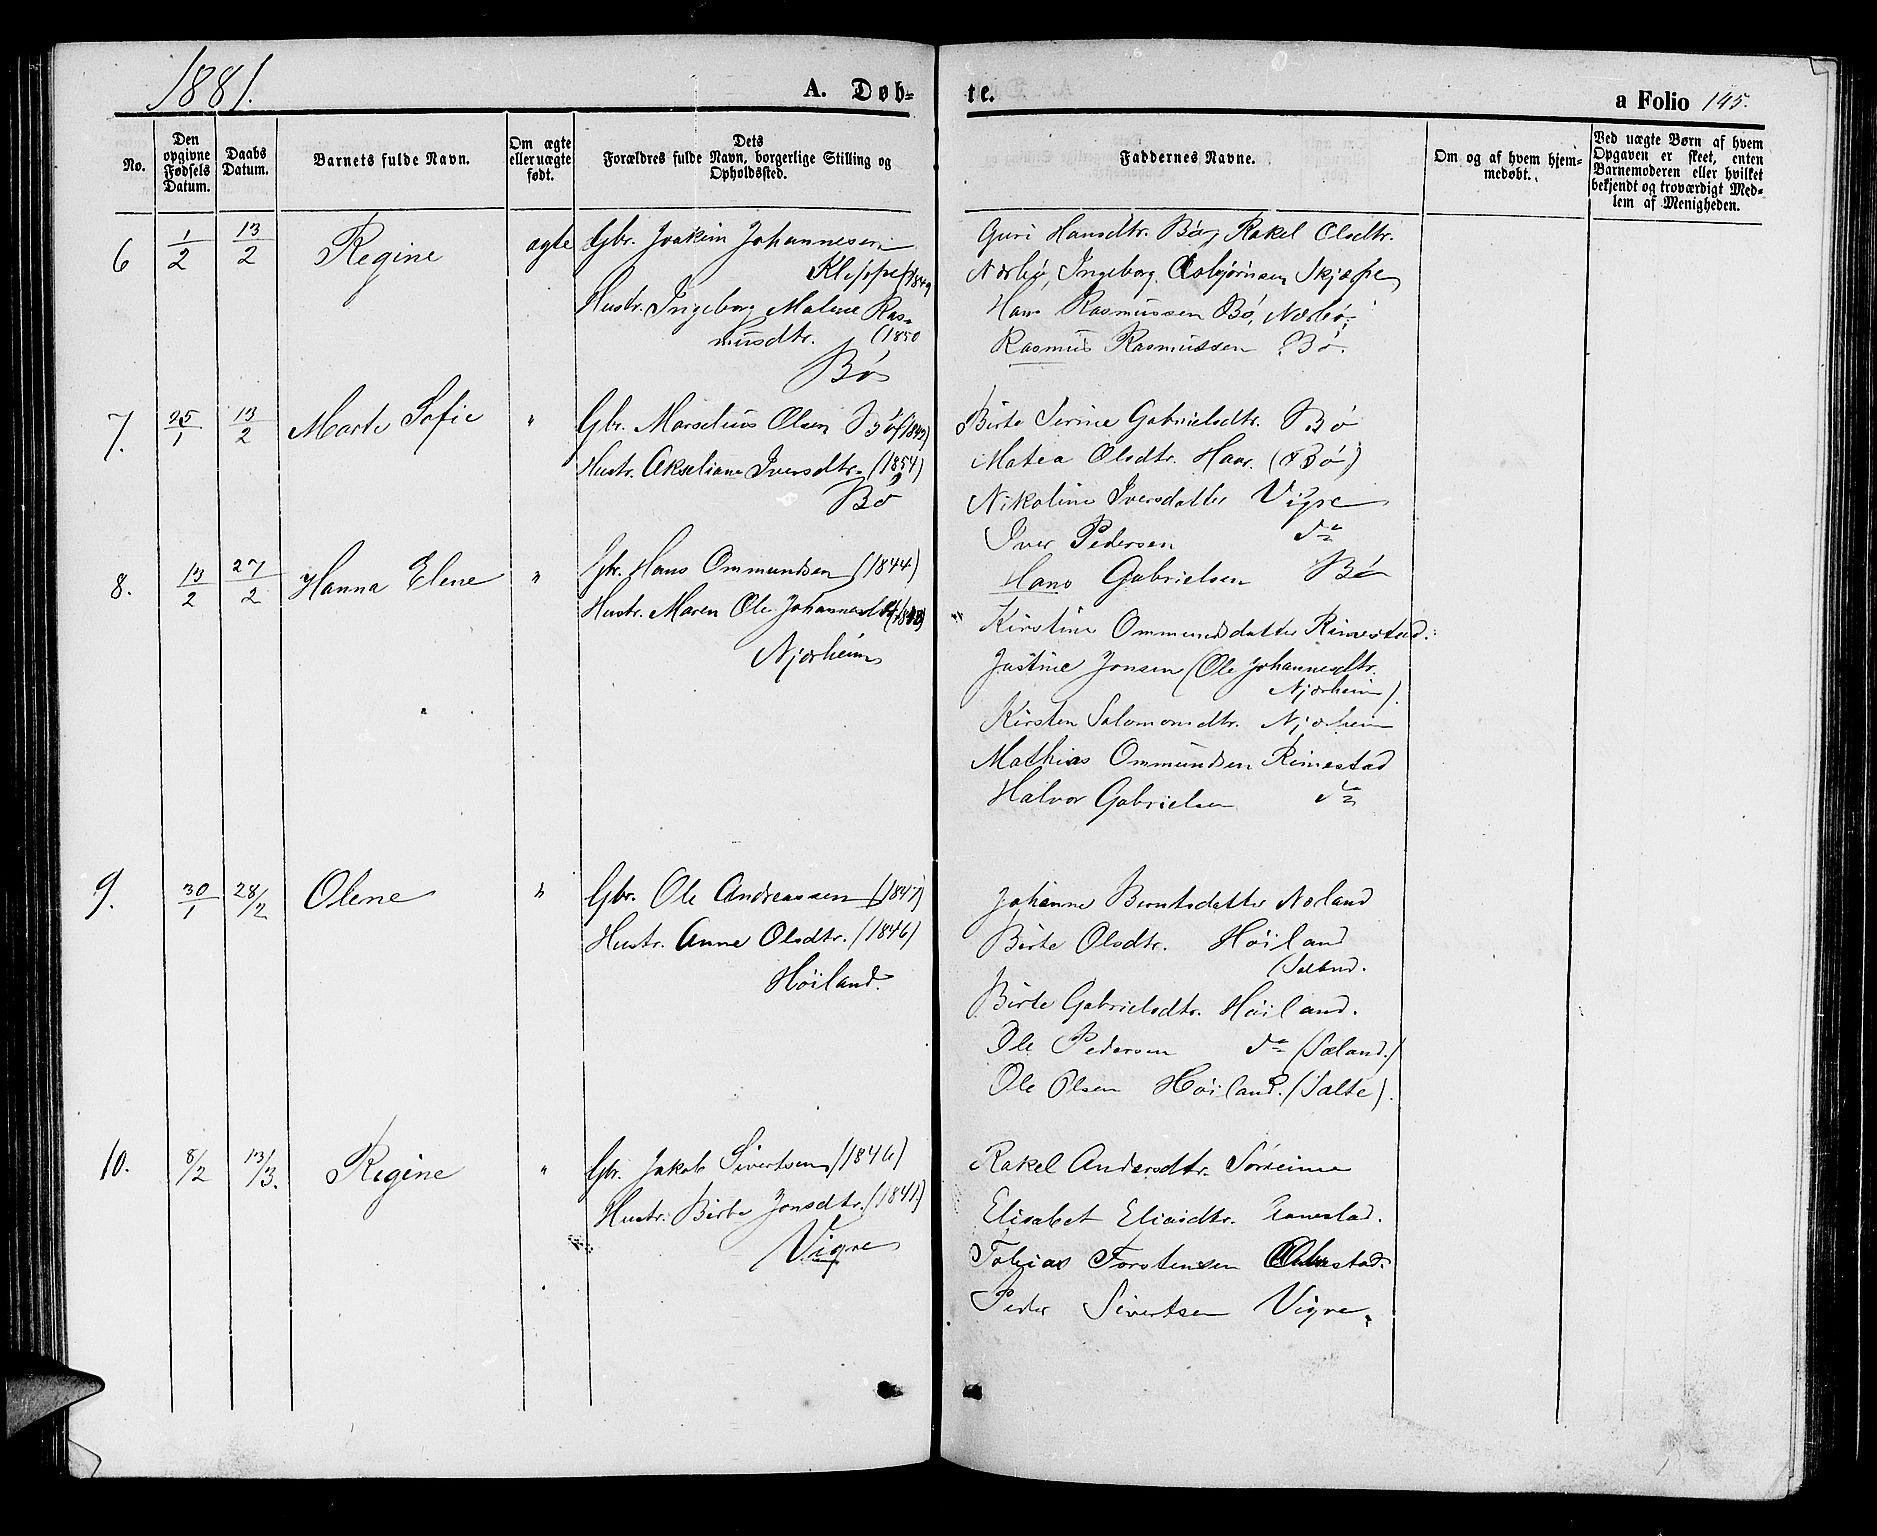 1881.
A. Døb-
te.
a Folio 145.
No.
Den opgivne Fødsels Datum.
Daabs Datum.
Barnets fulde Navn.
Om ægte eller uægte født.
Dets Forældres fulde Navn, borgerlige Stilling og Opholdssted.
Faddernes Navne.
Om og af hvem hjemmedøbt.
Ved uægte Børn af hvem Opgaven er skeet, enten Barnemoderen eller hvilket bekjendt og troværdigt Medlem af Menigheden.
6 1/2 13/2 Regine ægte Gbr. Joakim Johannesen
Kleppe (1849
Hustr. Ingeborg Malene Ras-
musdtr. (1850
Bø
Guri Hansdtr. Bø, Rakel Olsdtr.
Nærbø, Ingeborg Asbjørnsen Skjæpe
Hans Rasmussen Bø, Nærbø,
Rasmus Rasmussen Bø.
7. 25/1 13/2 Marte Sofie " Gbr. Marselius Olsen Bø (1842)
Hustr. Akseliane Iversdtr. (1854)
Bø
Birte Serine Gabrielsdtr. Bø
Matea Olsdtr. Haar. (Bø)
Nikoline Iversdatter Vigre
Iver Pedersen do
Hans Gabrielsen Bø
8. 13/2 27/2 Hanna Elene " Gbr. Hans Ommundsen (1844)
Hustr. Maren Ole Johannesdtr.
Njærheim
Kirstine Ommundsdatter Rimestad.
Justine Jonsen (Ole Johannesdtr.
Njærheim).
Kirsten Salomonsdtr. Njærheim
Mathias Ommundsen Rimestad
Halvor Gabrielsen do
9. 30/1 28/2 Olene " Gbr. Ole Andreassen (1847)
Hustr. Anne Olsdtr. (1846)
Høiland.
Johanne Berntsdatter Norland
Birte Olsdtr. Høiland
(Sæland.
Birte Gabrielsdtr. Høiland.
Ole Pedersen do (Sæland.)
Ole Olsen Høiland. (Salte).
10. 8/2 13/3. Regine " Gbr. Jakob Sivertsen (1846)
Hustr. Birte Jonsdtr. (1841.)
Vigre
Rakel Andersdtr. Sørheim
Elisabet Eliasdtr.
Tobias Torstensen
Peder Sivertsen Vigre.